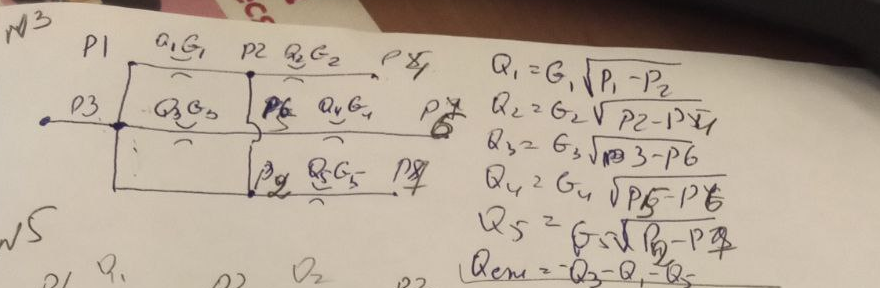 N3
P1 Q1G1 P2 Q2G2 P4
P3 Q3G3 P5 Q4G4 P6
P2 Q5G5 P7
Q1 = G1 √P1 - P2
Q2 = G2 √P2 - P4
Q3 = G3 √P3 - P6
Q4 = G4 √P5 - P6
Q5 = G5 √P2 - P7
= -Q3 - Q1 - Q5
N5
P1 Q1 P2 Q2 P3